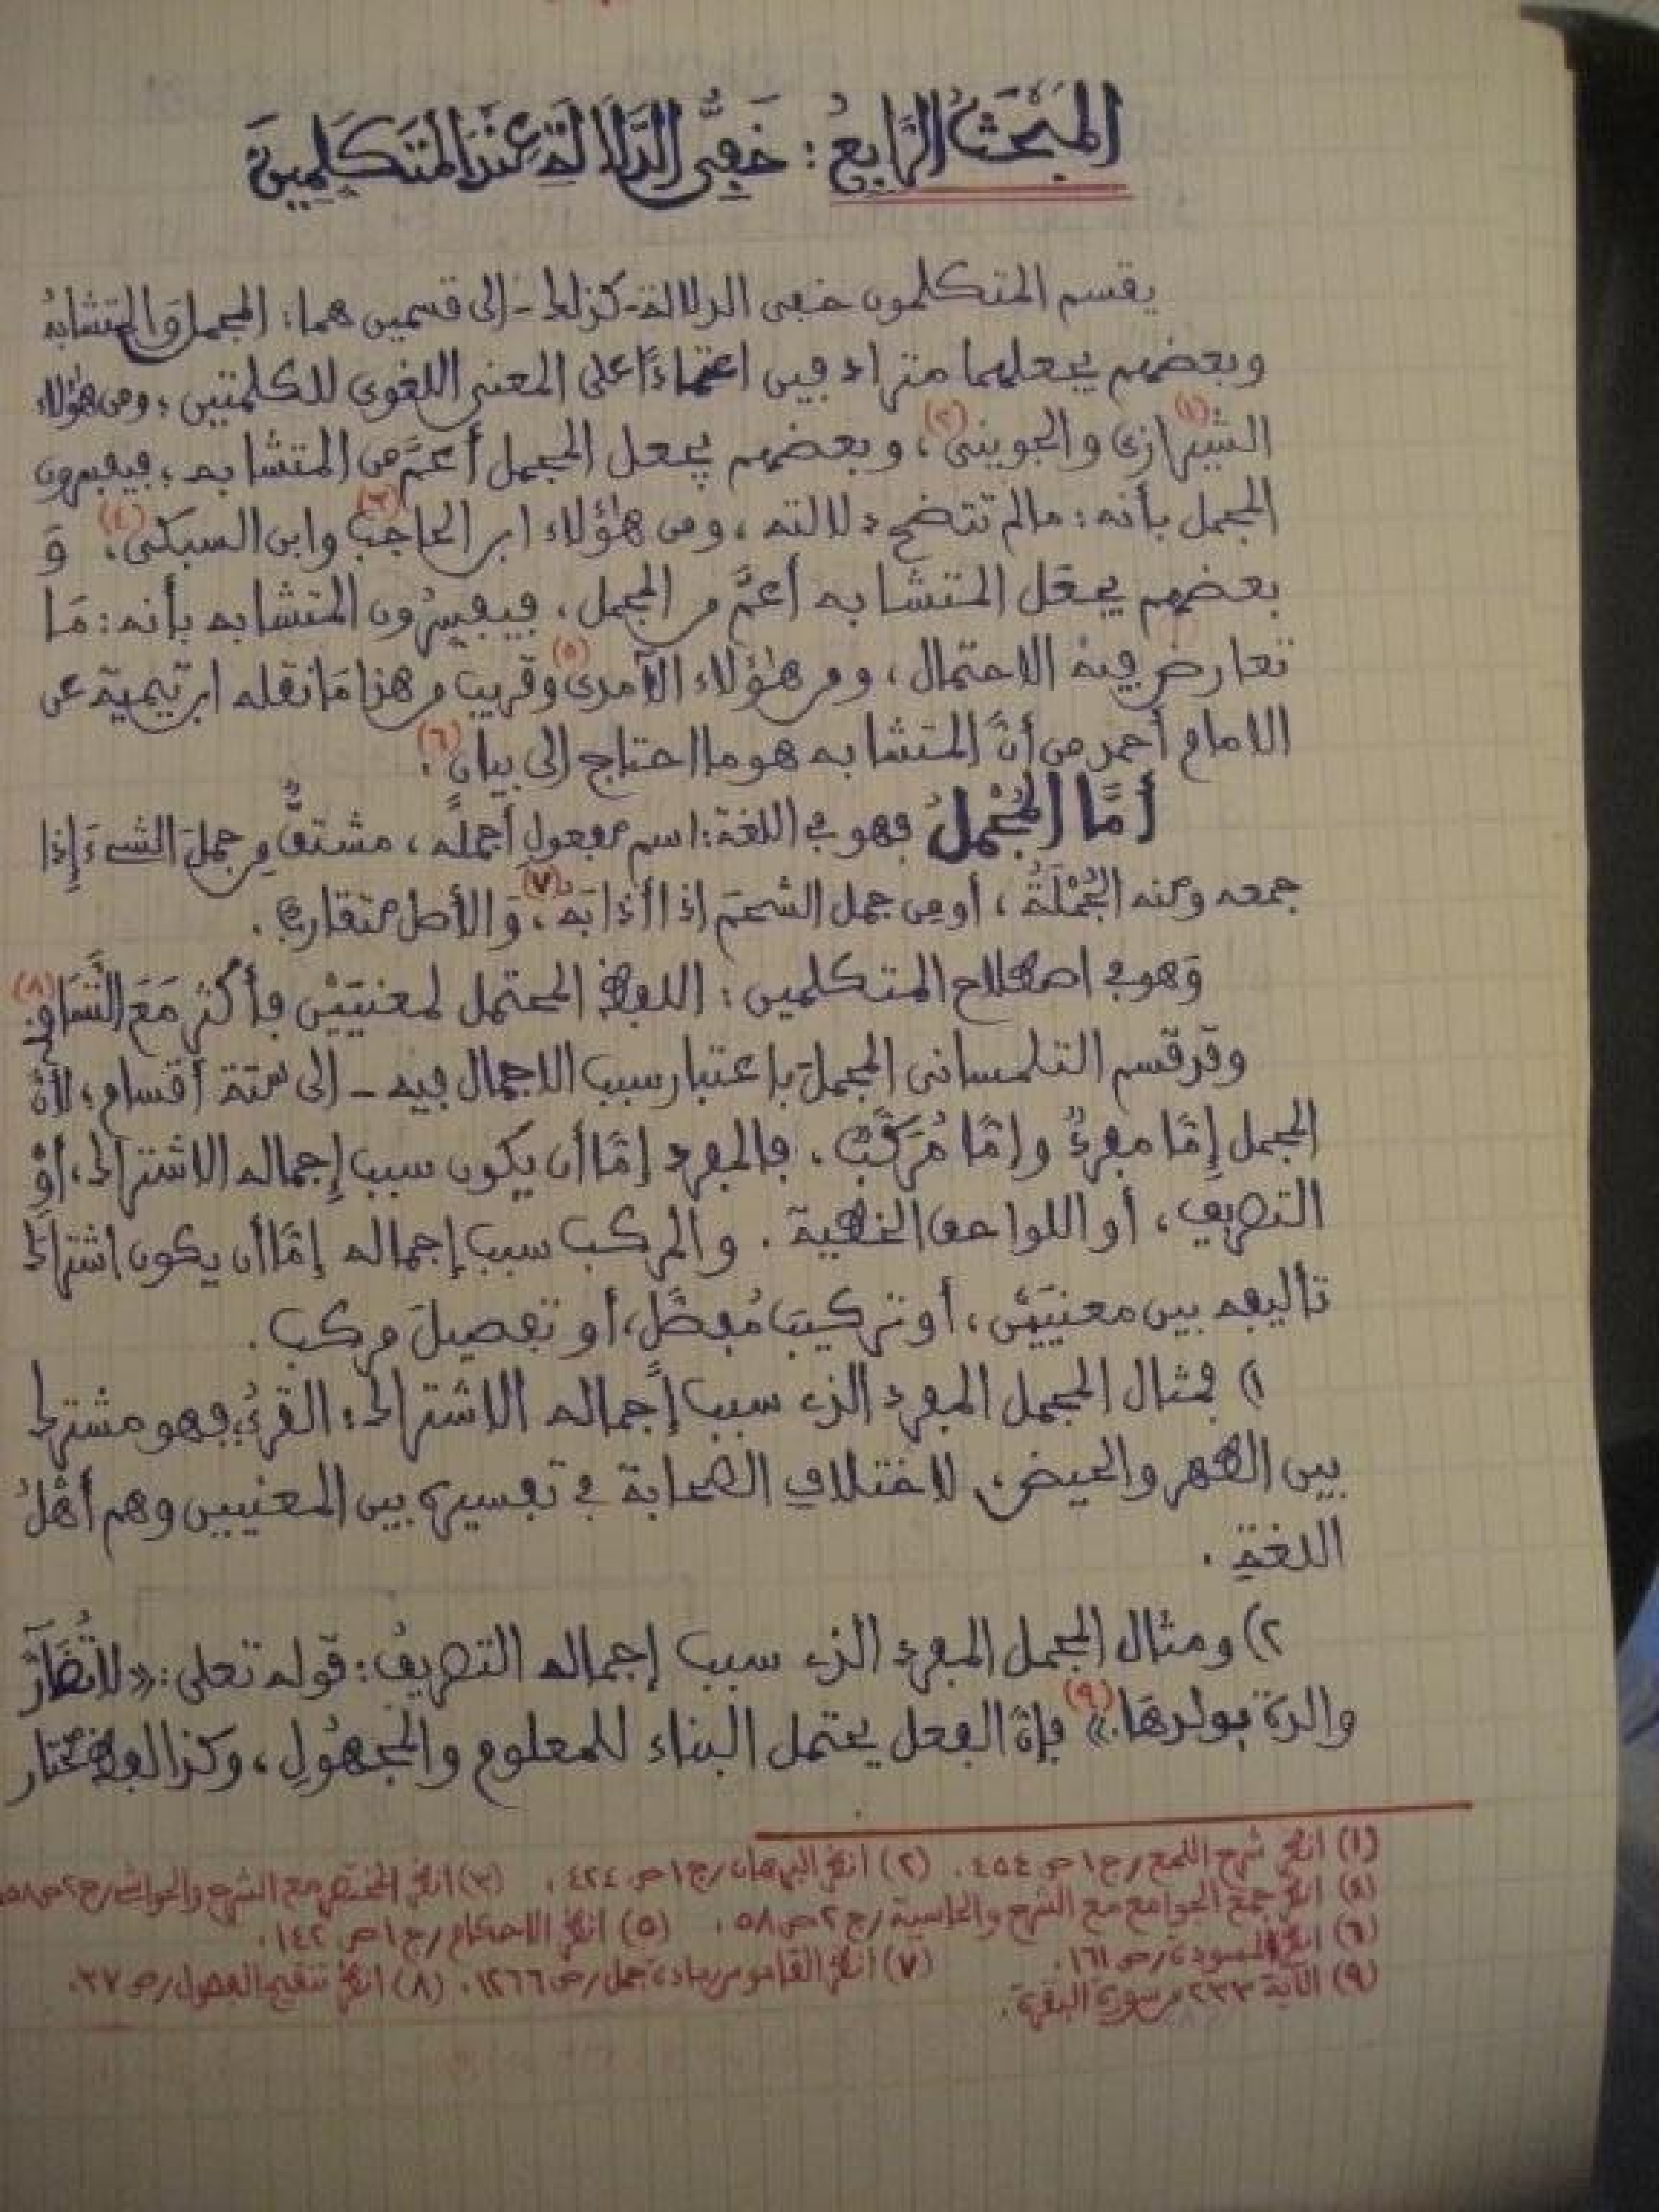 المَبْحَثُ الرَّابِعُ: خَفِيُّ الدَّلَالَةِ عِنْدَ المُتَكَلِّمِينَ
يقسم المتكلمون خفي الدلالة - كذلك - إلى قسمين هما: المجمل وَالمتشابهُ
وبعضهم يجعلهما مترادفين اعتمادًا على المعنى اللغوي للكلمتين؛ ومن هؤلاء
الشيرازي(١) والجويني(٢)، وبعضهم يجعل المجمل أعمَّ من المتشابه؛ فيفسرون
المجمل بأنه: مالم تتضح دلالته، ومن هؤلاء ابن الحاجب(٣) وابن السبكي(٤)، وَ
بعضهم يجعل المتشابه أعمَّ من المجمل، فيفسِّرُون المتشابه بأنه: مَا
تعارض فيه الاحتمال، ومن هؤلاء الآمدي(٥) وقريب من هذا مَا نقله ابن تيمية عن
الامام أحمد من أنَّ المتشابه هو ما احتاج إلى بيان(٦).
أمَّا المُجْمَلُ فهو في اللغة: اسم مفعول أجمله، مشتقٌّ من جملَ الشيءَ إِذا
جمعه ومنه الجُمْلَةُ، أو من جمل الشحمَ إذا أذابَهُ(٧)، وَالأصل متقارب.
وَهو في اصطلاح المتكلمين: اللفظ المحتمل لمعنيَيْن فأكثر مَعَ التَّسَاوِي(٨)
وقد قسم التلمساني المجملَ باعتبار سبب الاجمال فيه - إلى ستة أقسام؛ لأنَّ
المجمل إِمَّا مفردٌ وإمَّا مُرَكَّبٌ. فالمفرد إمَّا أن يكون سبب إِجماله الاشتراك، أوْ
التصريف، أو اللواحق الخطية. والمركب سبب إجماله إمَّا أن يكون اشتراكَ
تأليفه بين معنيَيْن، أو تركيبَ مُفصَّل، أو تفصيلَ مركب.
١) فمثال المجمل المفرد الذي سبب إجماله الاشتراك: القرءُ فهو مشترك
بين الطهر والحيض، لاختلاف الصحابة في تفسيره بين المعنيين وهم أهْلُ
اللغة.
٢) ومثال المجمل المفرد الذي سبب إجماله التصريفُ: قوله تعلى: «لَا تُضَآرَّ
والدة بولدهَا»(٩) فإنَّ الفعل يحتمل البناء للمعلوم والمجهُولِ، وكذا لفظ مختار
(١) انظر شرح اللمع/ج١ص٤٥٤. (٢) انظر البرهان/ج١ص٤٢٤. (٣) انظر المختصر مع الشرح والحواشي/ج٢ص١٥٨
(٤) انظر جمع الجوامع مع الشرح والحاشية/ج٢ص٥٨. (٥) انظر الاحكام/ج١ص١٤٢.
(٦) انظر المسودة/ص١٦١. (٧) انظر القاموس مادة جمل/ص١٢٦٦. (٨) انظر تنقيح الفصول/ص٣٧.
(٩) الآية ٢٣٣ من سورة البقرة.